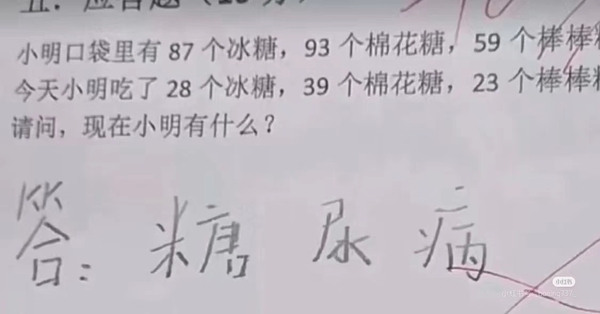 五．应答题（
小明口袋里有 87 个冰糖，93 个棉花糖，59 个棒棒糖
今天小明吃了 28 个冰糖，39 个棉花糖，23 个棒棒糖
请问，现在小明有什么？
答：糖尿病
小红书